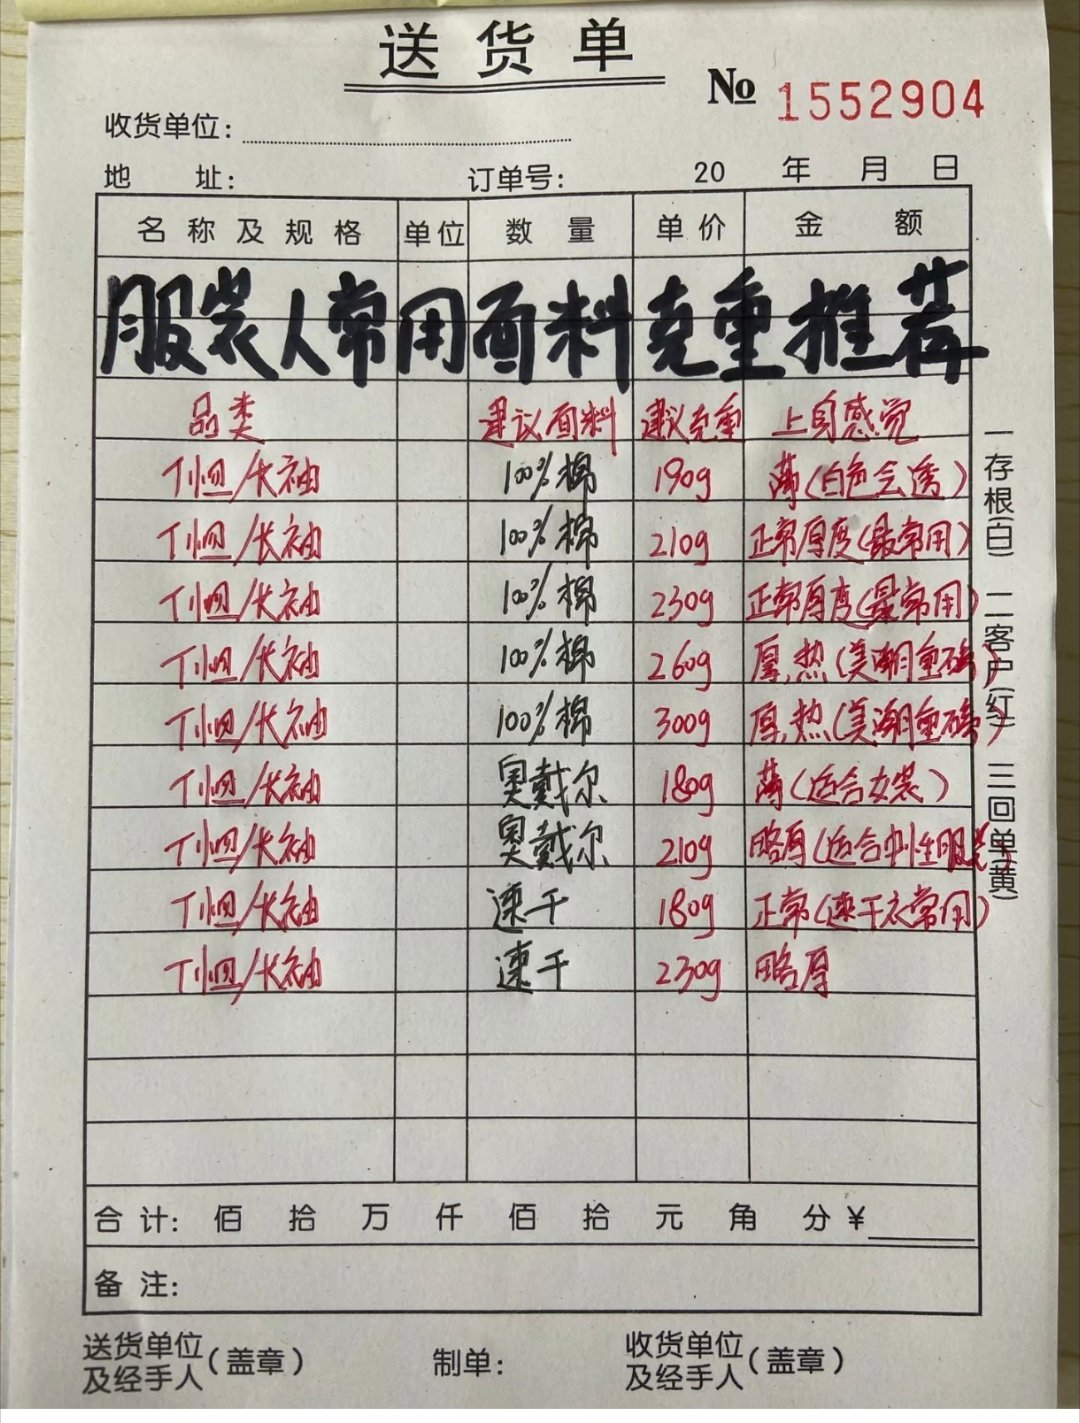 送货单
No 1552904
收货单位:
地 址: 订单号: 20 年 月 日
名称及规格 单位 数量 单价 金额
服装人常用面料克重推荐
品类 建议面料 建议克重 上身感觉
T恤/长袖 100%棉 190g 薄(白色会透)
T恤/长袖 100%棉 210g 正常厚度(最常用)
T恤/长袖 100%棉 230g 正常厚度(最常用)
T恤/长袖 100%棉 260g 厚,热(美潮重磅)
T恤/长袖 100%棉 300g 厚,热(美潮重磅)
T恤/长袖 奥戴尔 180g 薄(适合女装)
T恤/长袖 奥戴尔 210g 略厚(适合中性服装)
T恤/长袖 速干 180g 正常(速干衣常用)
T恤/长袖 速干 230g 略厚
合计: 佰 拾 万 仟 佰 拾 元 角 分 ¥
备注:
送货单位及经手人(盖章) 制单: 收货单位及经手人(盖章)
一存根(白) 二客户(红) 三回单(黄)